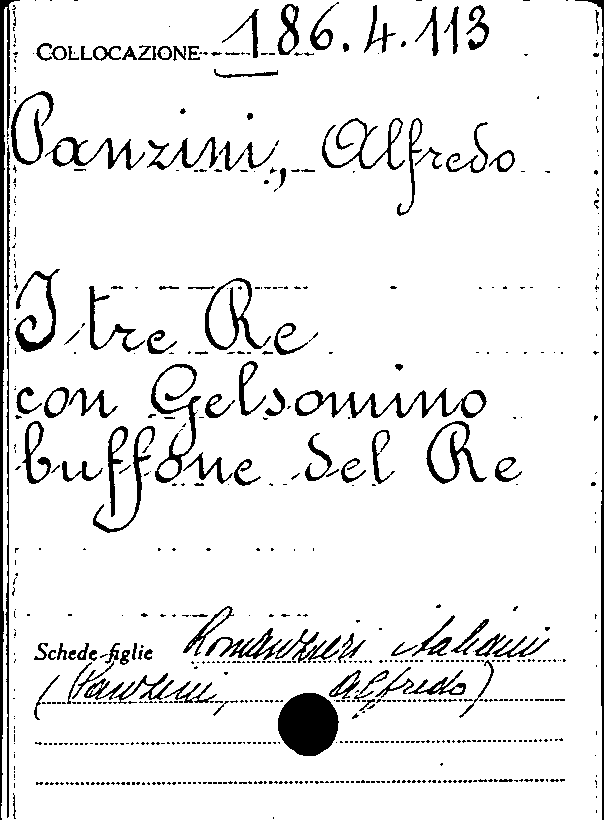 COLLOCAZIONE 186.4.113
Panzini, Alfredo
I tre Re
con Gelsomino
buffone del Re
Schede figlie Romanzieri italiani
(Panzini, Alfredo)